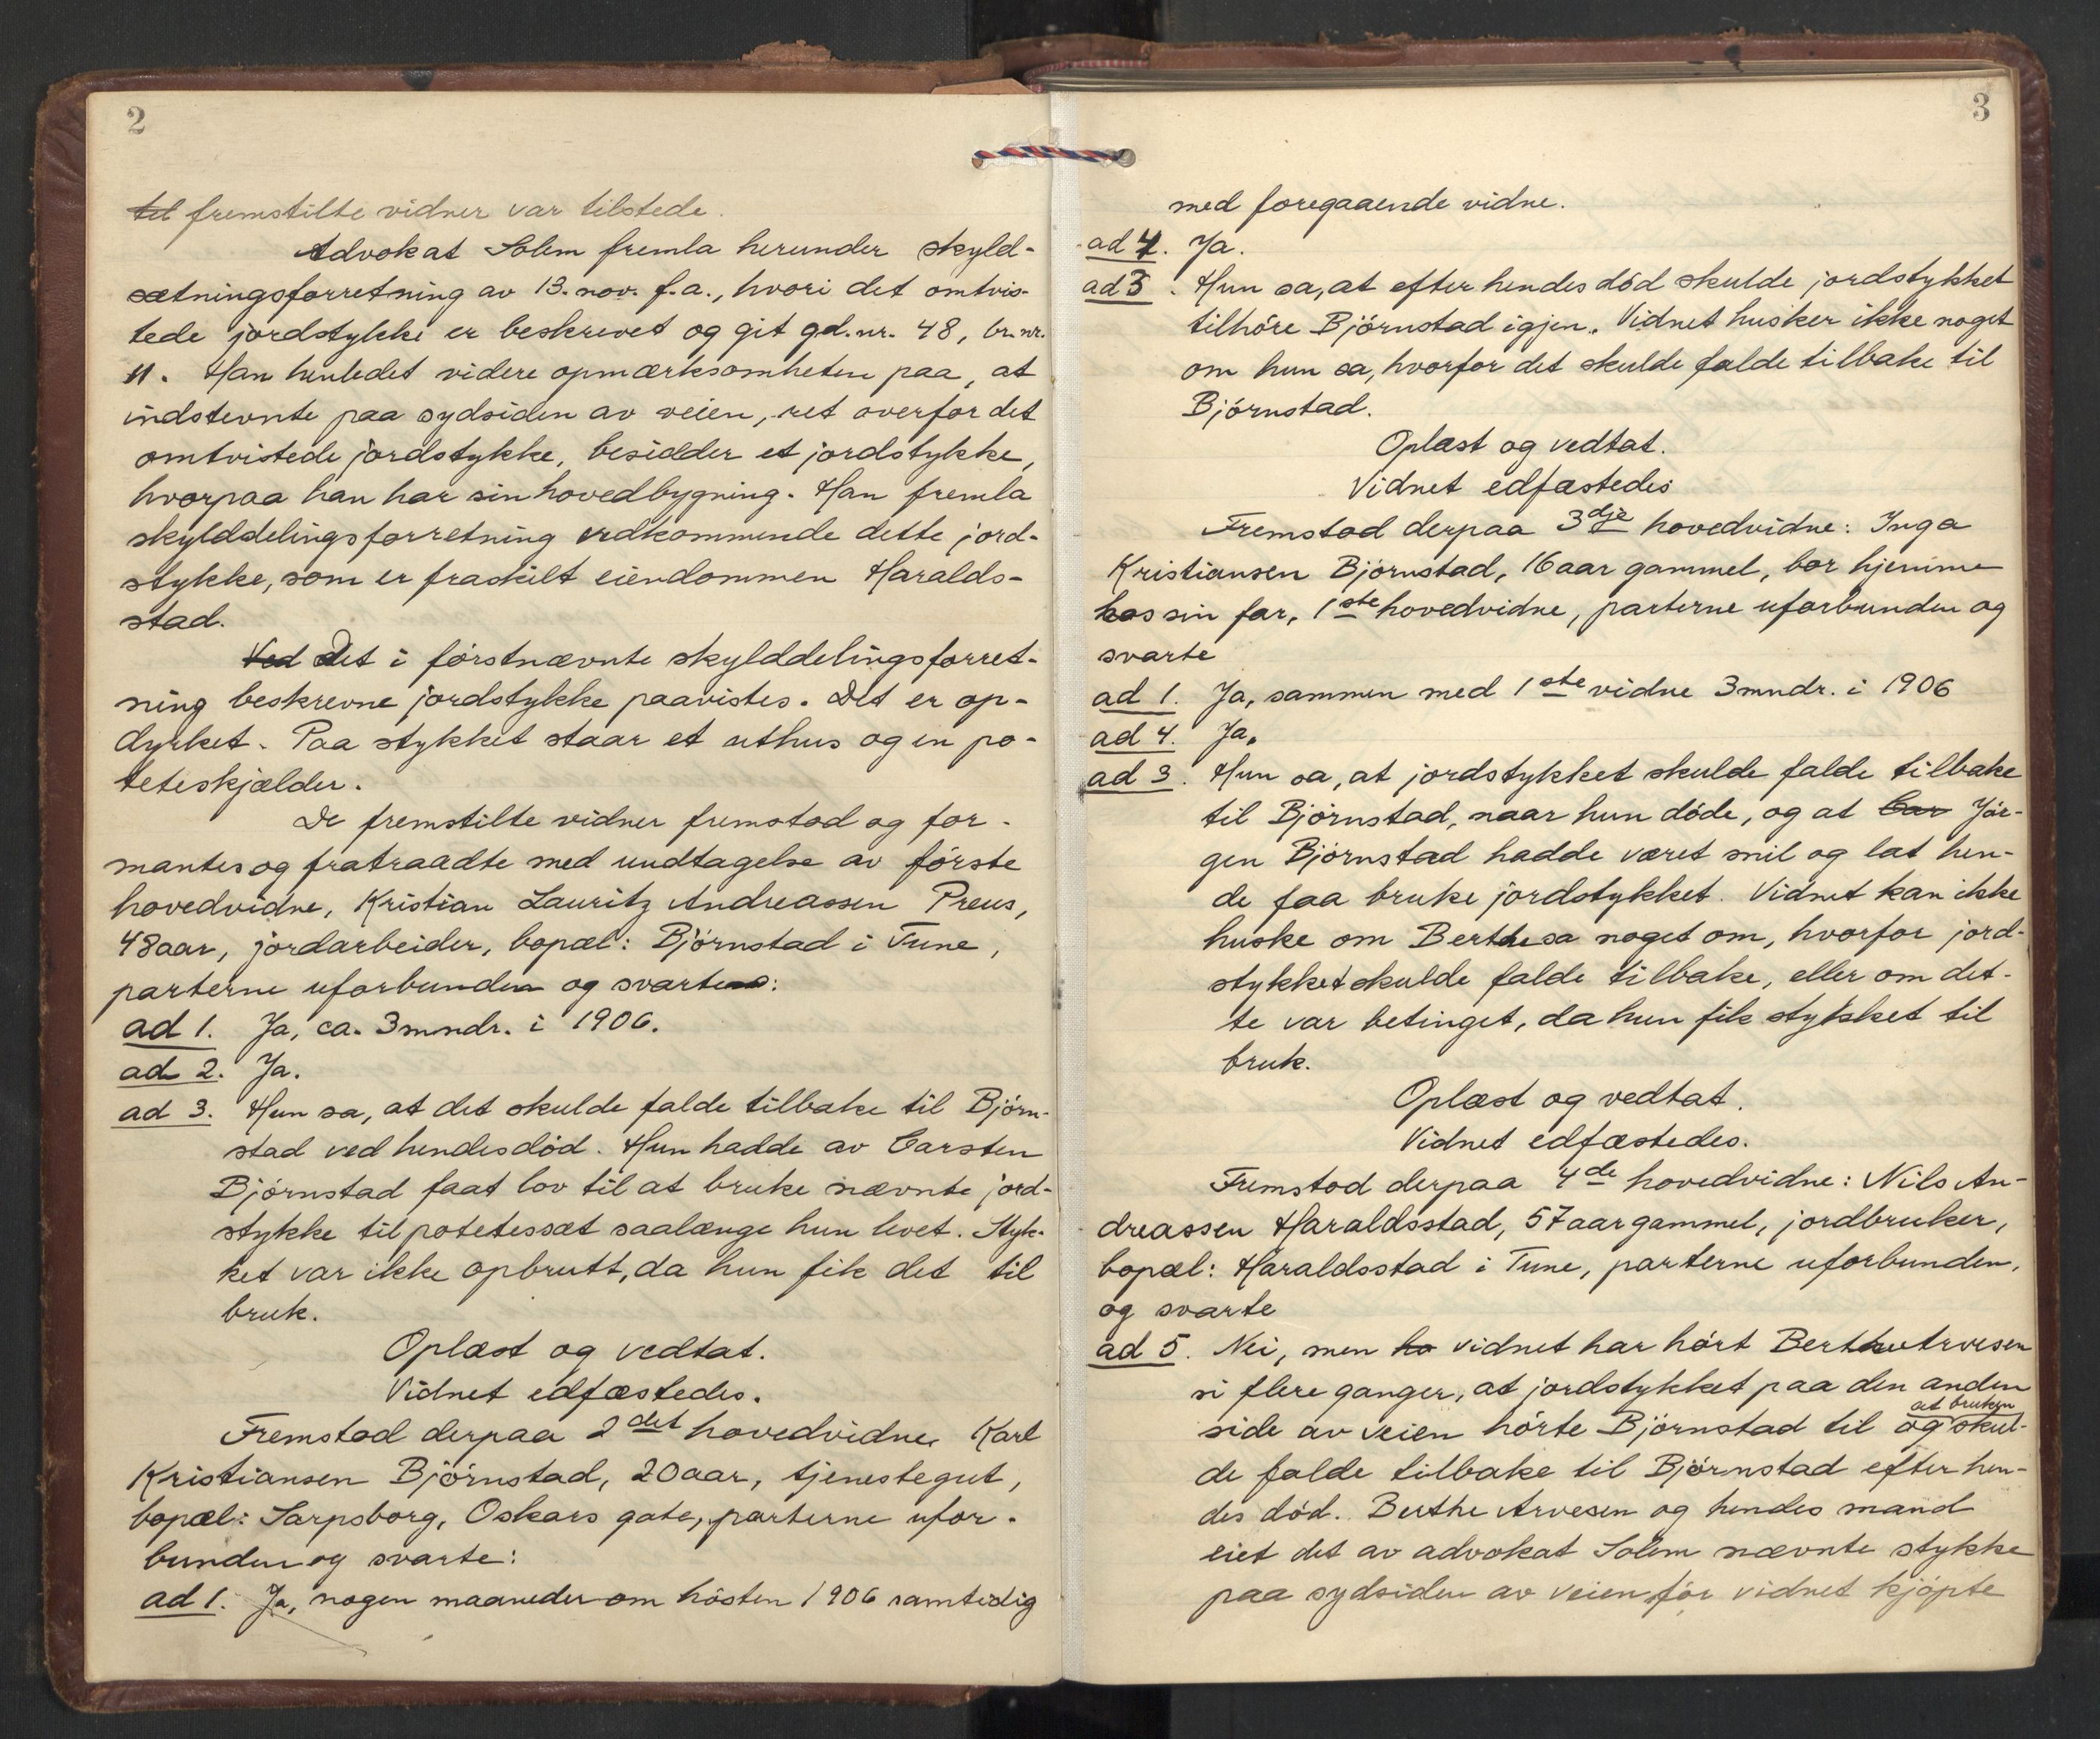 2
til fremstilte vidner var tilstede.
Advokat Solem fremla herunder skyld-
sætningsforretning av 13. nov. f.a., hvori det omtvis-
tede jordstykke er beskrevet og git gd.nr. 48, br.nr.
11. Han henledet videre opmærksomheten paa, at
indstevnte paa sydsiden av veien, ret overfor det
omtvistede jordstykke, besidder et jordstykke,
hvorpaa han har sin hovedbygning. Han fremla
skylddelingsforretning vedkommende dette jord-
stykke, som er fraskilt eiendommen Haralds-
stad.
Ved Det i förstnævnte skylddelingsforret-
ning beskrevne jordstykke paavistes. Det er op-
dyrket. Paa stykket staar et uthus og en po-
teteskjælder.
De fremstilte vidner fremstod og for-
mantes og fratraadte med undtagelse av förste
hovedvidne, Kristian Lauritz Andreassen Preus,
48 aar, jordarbeider, bopæl: Björnstad i Tune,
parterne uforbunden og svarte:
ad 1. Ja, ca. 3 mndr. i 1906.
ad 2. Ja.
ad 3. Hun sa, at det skulde falde tilbake til Björn-
stad ved hendes död. Hun hadde av Carsten
Björnstad faat lov til at bruke nævnte jord-
stykke til potetessæt saalænge hun levet. Styk-
ket var ikke opbrutt, da hun fik det til
bruk.
Oplæst og vedtat.
Vidnet edfæstedes.
Fremstod derpaa 2det hovedvidne Karl
Kristiansen Björnstad, 20 aar, tjenestegut,
bopæl: Sarpsborg, Oskars gate, parterne ufor-
bunden og svarte:
ad 1. Ja, nogen maaneder om hösten 1906 samtidig
3
med foregaaende vidne.
ad 4. Ja.
ad 3. Hun sa, at efter hendes död skulde jordstykket
tilhöre Björnstad igjen. Vidnet husker ikke noget
om hun sa, hvorfor det skulde falde tilbake til
Björnstad.
Oplæst og vedtat.
Vidnet edfæstedes
Fremstod derpaa 3dje hovedvidne: Inga
Kristiansen Björnstad, 16 aar gammel, bor hjemme
hos sin far, 1ste hovedvidne, parterne uforbunden og
svarte
ad 1. Ja, sammen med 1ste vidne 3 mndr. i 1906
ad 4. Ja.
ad 3. Hun sa, at jordstykket skulde falde tilbake
til Björnstad, naar hun döde, og at Car Jör-
gen Björnstad hadde været snil og lat hen-
de faa bruke jordstykket. Vidnet kan ikke
huske om Berthe sa noget om, hvorfor jord-
stykket skulde falde tilbake, eller om det-
te var betinget, da hun fik stykket til
bruk.
Oplæst og vedtat.
Vidnet edfæstedes.
Fremstod derpaa 4de hovedvidne: Nils An-
dreassen Haraldsstad, 57 aar gammel, jordbruker,
bopæl: Haraldsstad i Tune, parterne uforbunden,
og svarte
ad 5. Nei, men ha vidnet har hört Berthe Arvesen
si flere ganger, at jordstykket paa den anden
side av veien hörte Björnstad til og at bruken skul-
de falde tilbake til Björnstad efter hen-
des död. Berthe Arvesen og hendes mand
eiet det av advokat Solem nævnte stykke
paa sydsiden av veien för vidnet kjöpte